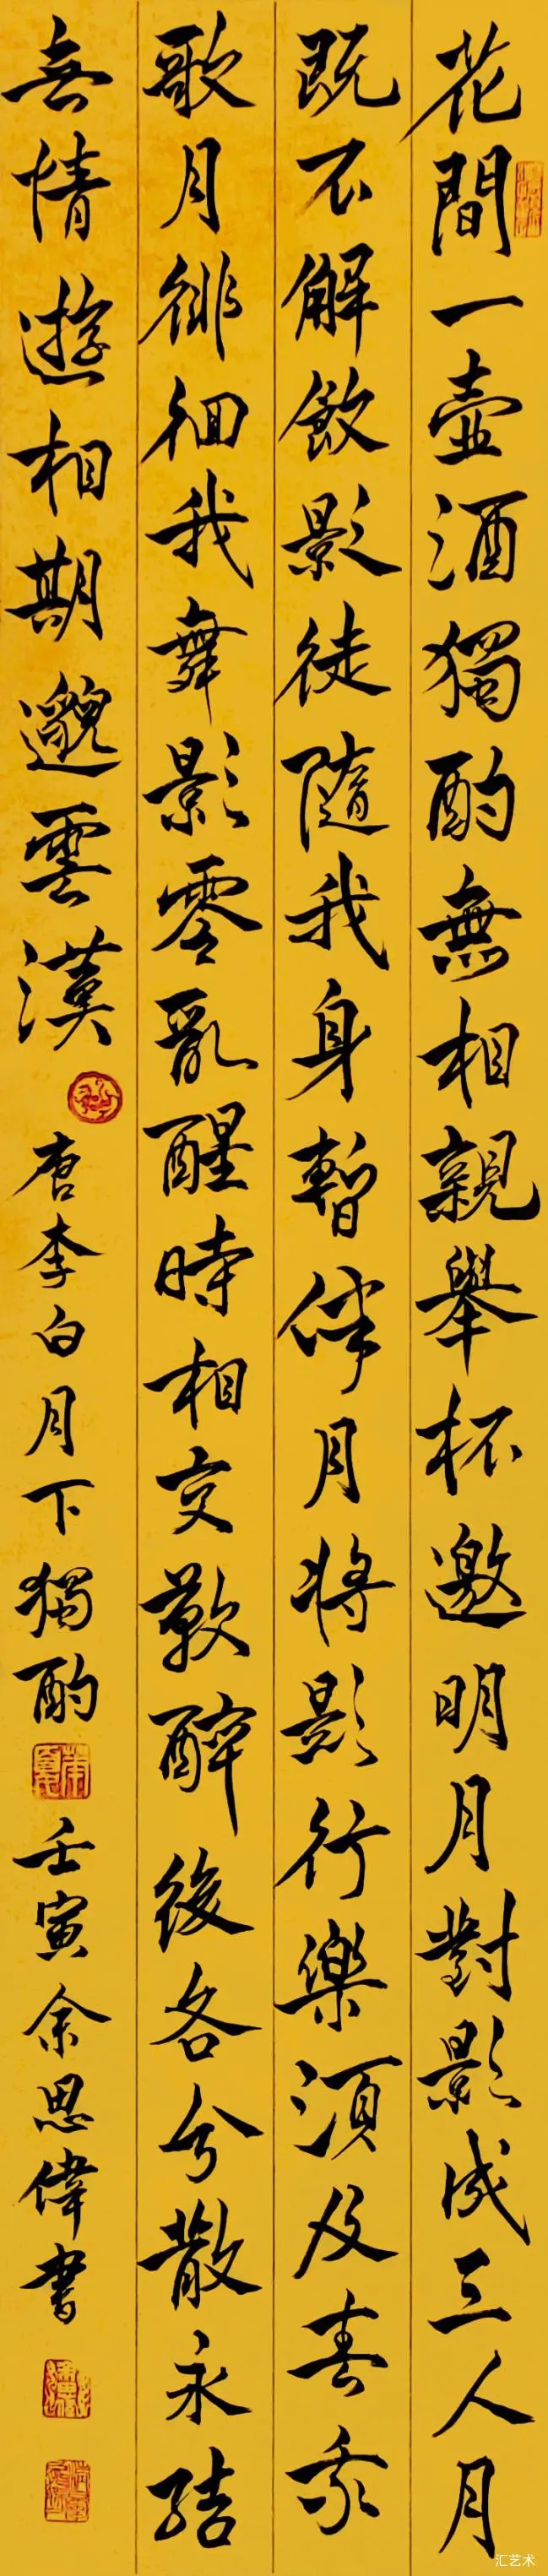 花間一壺酒獨酌無相親舉杯邀明月對影成三人月
既不解飲影徒隨我身暫伴月將影行樂須及春我
歌月徘徊我舞影零亂醒時相交歡醉後各分散永結
無情遊相期邈雲漢
唐李白月下獨酌
壬寅余思偉書
汇艺术